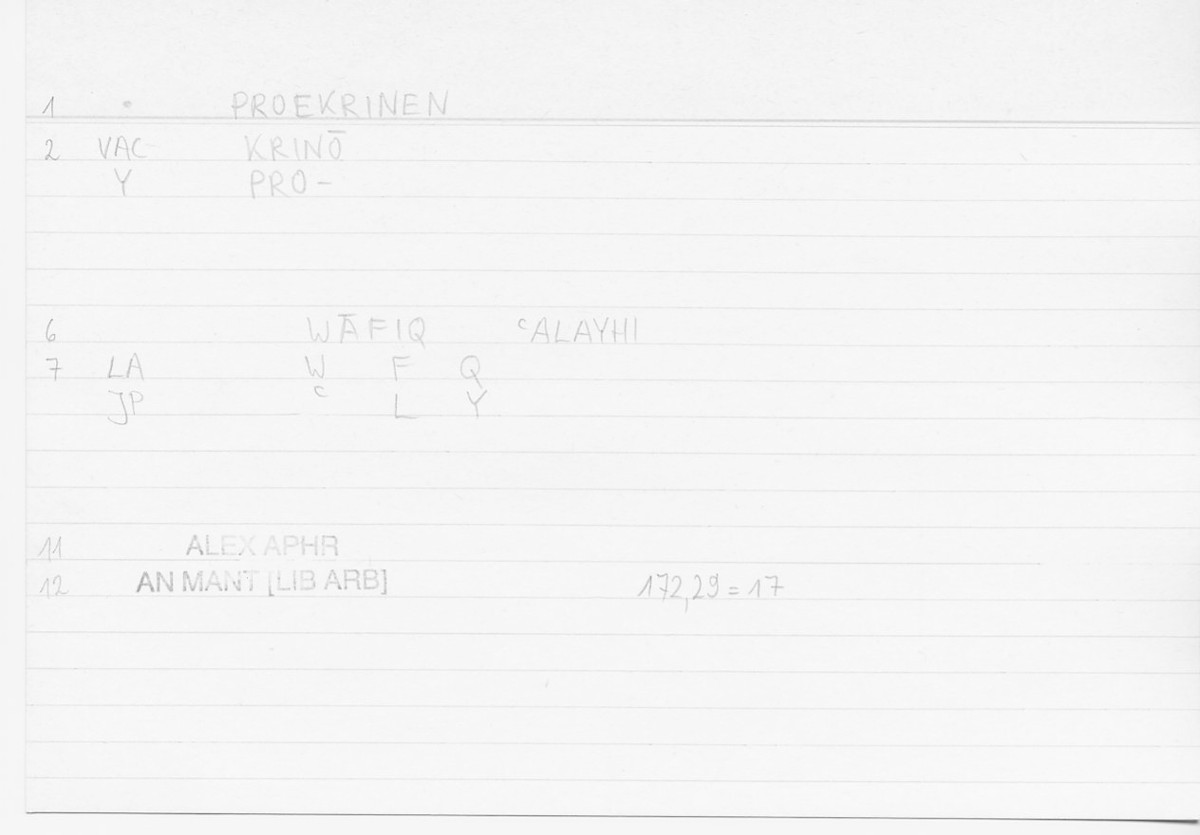 1 • PROEKRINEN
2 VAC KRINŌ
Y PRO-
6 WĀFIQ ᶜALAYHI
7 LA W F Q
JP ᶜ L Y
11 ALEX APHR
12 AN MANT [LIB ARB] 172,29 = 17